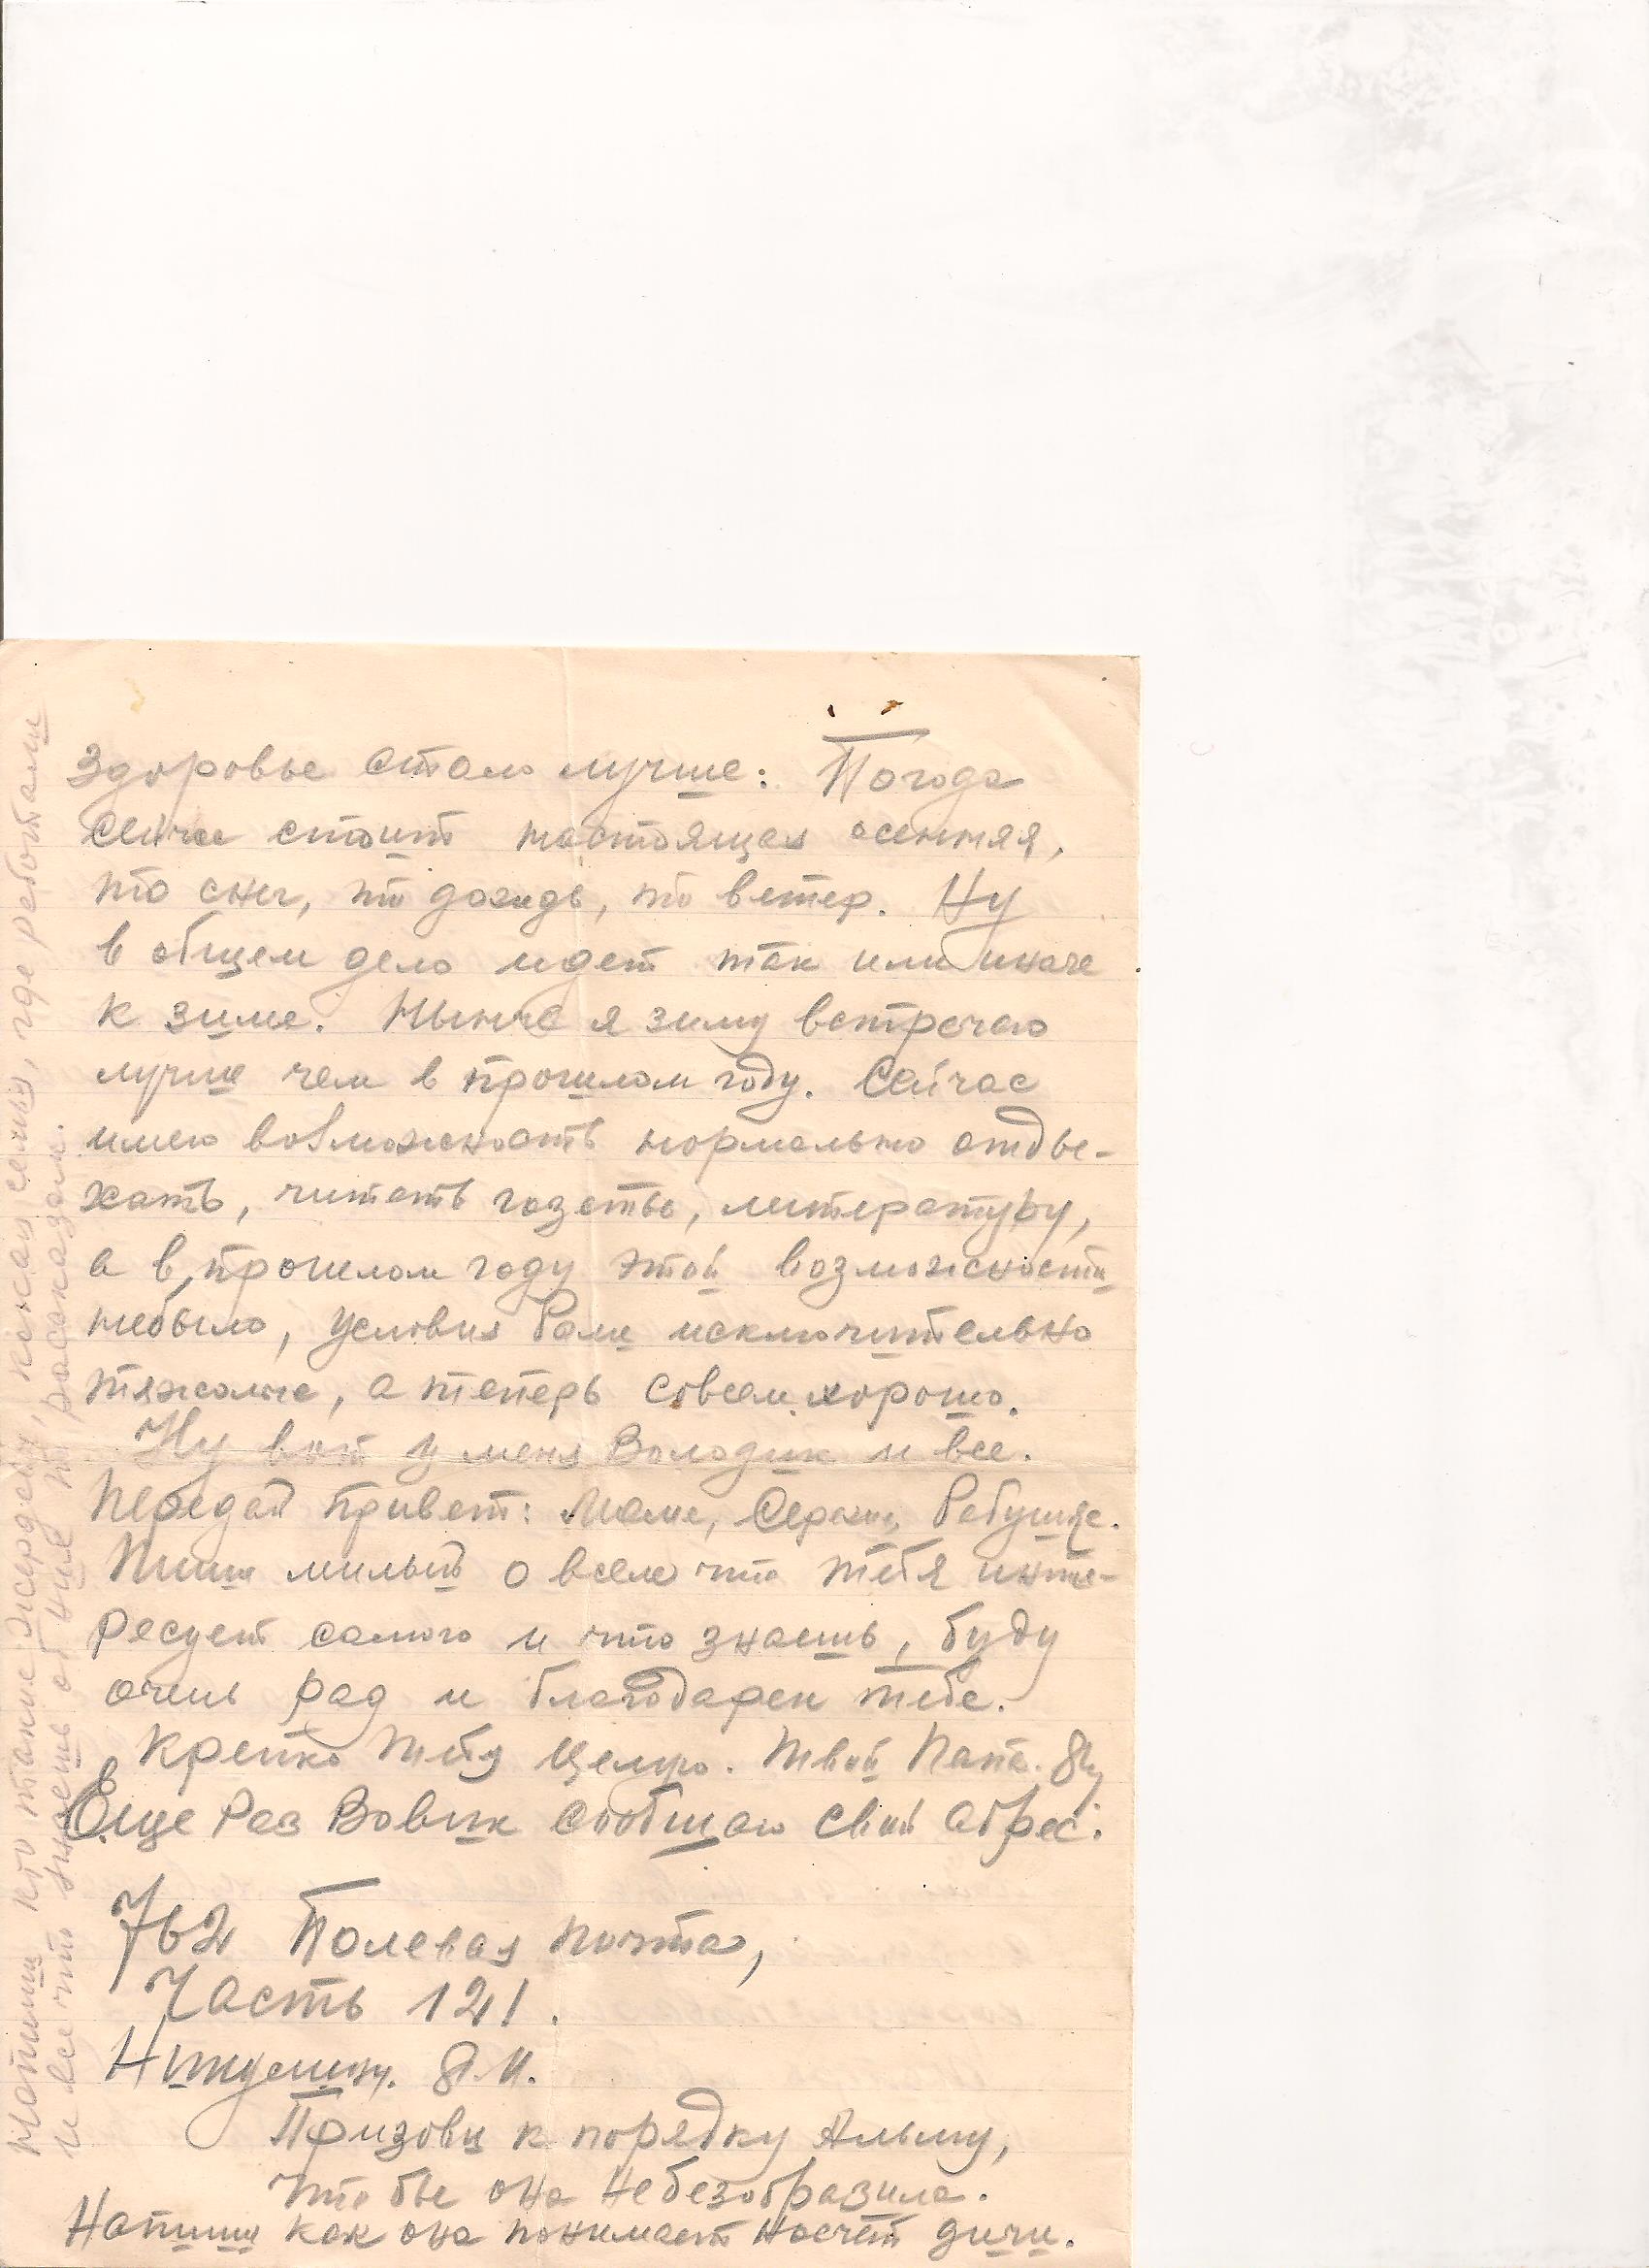 Здоровье стало лучше: Погода
сейчас стоит настоящая осенняя,
то снег, то дождь, то ветер. Ну
в общем дело идет так или иначе
к зиме. Нынче я зиму встречаю
лучше чем в прошлом году. Сейчас
имею возможность нормально отды-
хать, читать газеты, литературу,
а в прошлом году этой возможности
небыло, условия были исключительно
тяжолые, а теперь совсем хорошо.
Ну вот у меня Володик и все.
Передай привет: Маме, Бабушке.
Пиши милый о всем что тебя инте-
ресует самого и что знаешь, буду
очень рад и благодарен тебе.
Крепко тебя целую. Твой Папа.
Еще Раз Вовик сообщаю свой адрес:
762 Полевая почта,
Часть 121.
Я.И.
Призови к порядку Альму,
что бы она небезобразила.
Напиши как она понимает насчет дичи.
Напиши кто такие какая семья, где работали
и все что знаешь об них то расскажи.